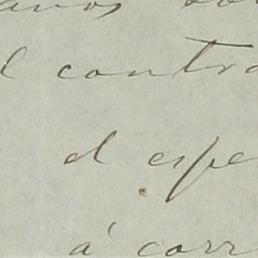 l contra
el espe
á corr